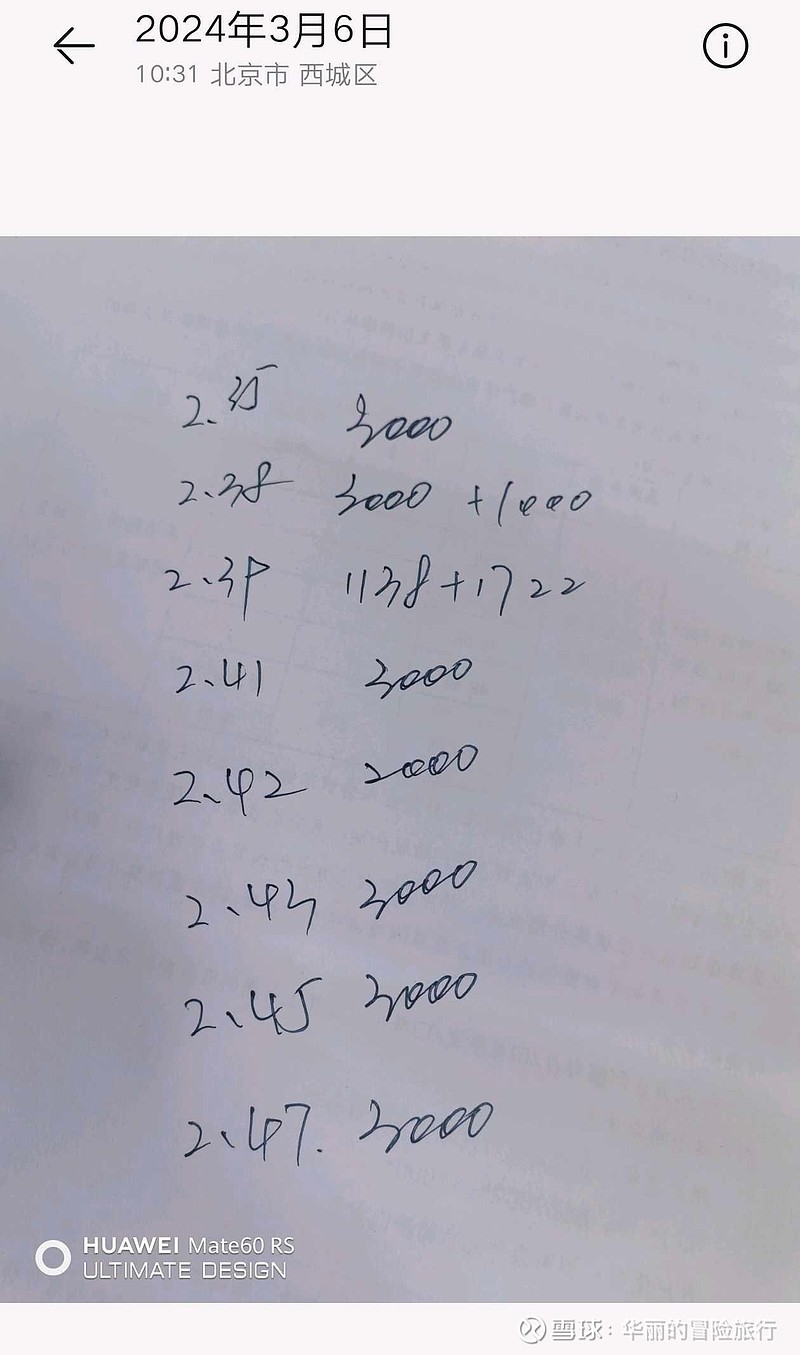 2024年3月6日
10:31 北京市 西城区
2.35 3000
2.38 3000 +1000
2.39 1138+1722
2.41 3000
2.42 2000
2.43 3000
2.45 3000
2.47. 3000
HUAWEI Mate60 RS
ULTIMATE DESIGN
雪球：华丽的冒险旅行